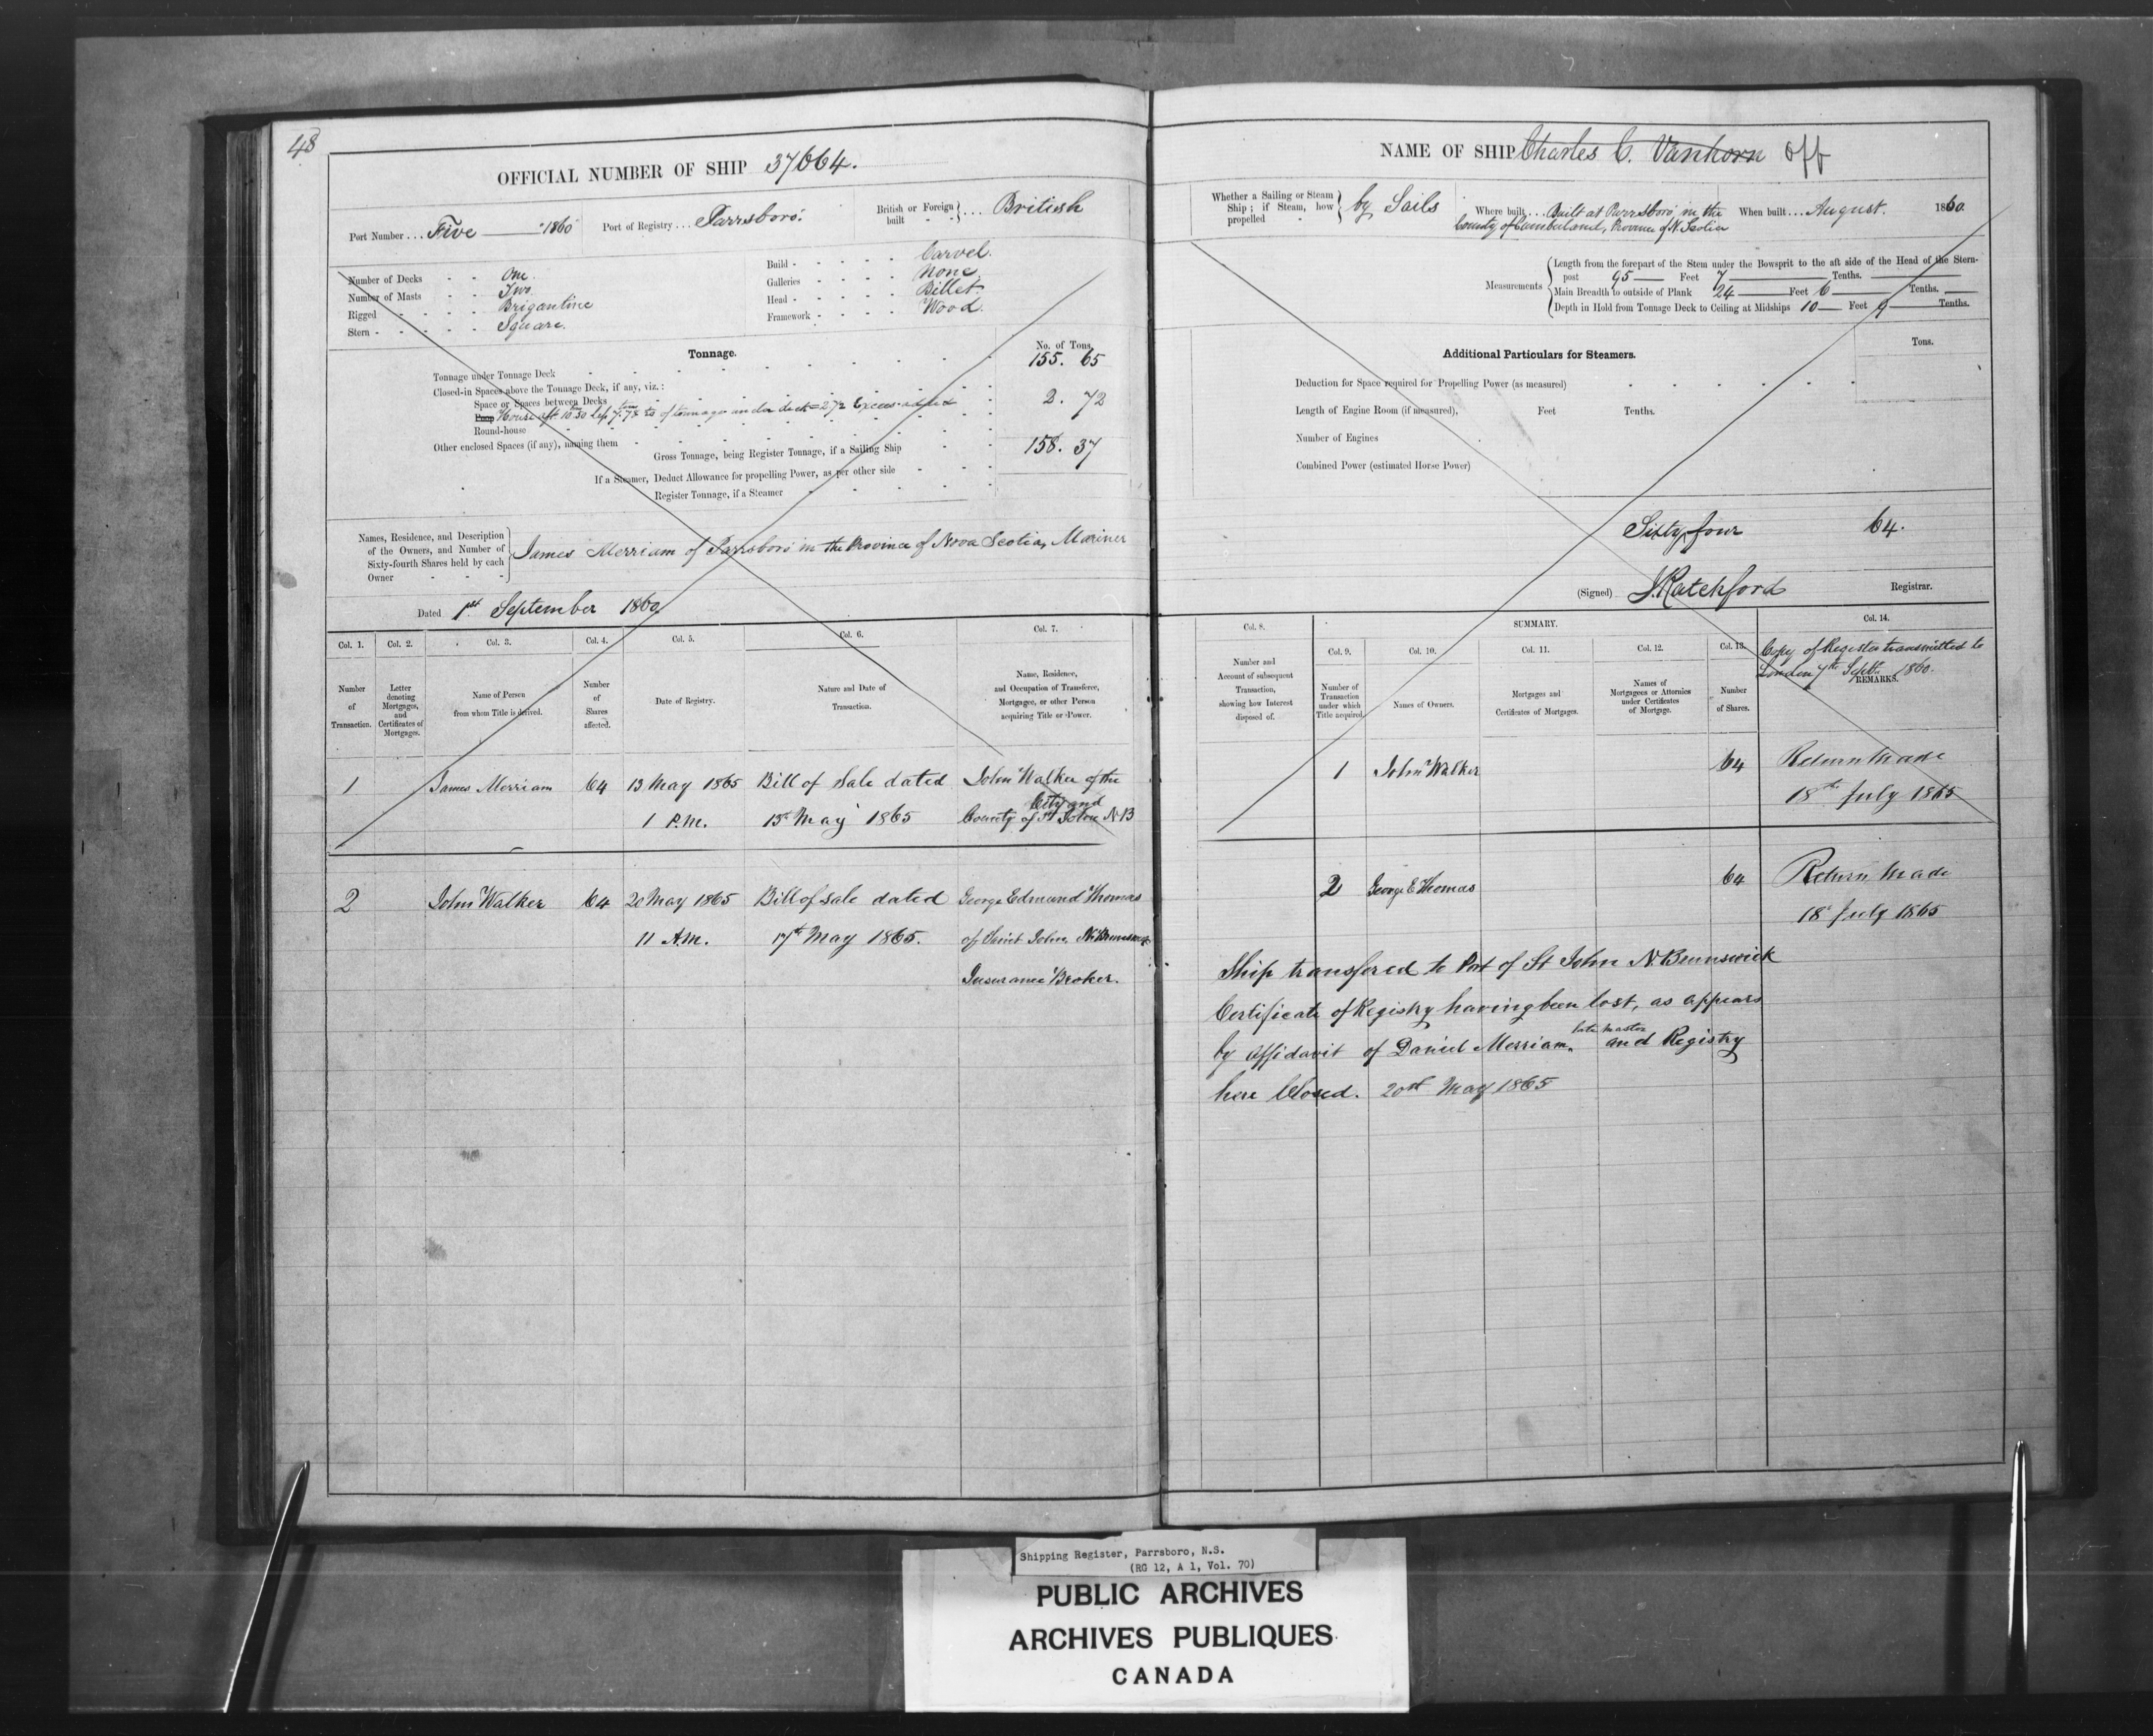 48
OFFICIAL NUMBER OF SHIP 37664.
Port Number ... Five — 1860 Port of Registry ... Parrsboro. British or Foreign built ... British
Number of Decks One.
Number of Masts Two
Rigged Brigantine
Stern Square.
Build Carvel.
Galleries None.
Head Billet.
Framework Wood.
Tonnage.
No. of Tons.
Tonnage under Tonnage Deck 155. 65
Closed-in Spaces above the Tonnage Deck, if any, viz.:
Space or Spaces between Decks
Poop House aft 10.50 less 7.78 of tonnage under deck = 2.72 Excess added 2. 72
Round-house
Other enclosed Spaces (if any), naming them
Gross Tonnage, being Register Tonnage, if a Sailing Ship 158. 37
If a Steamer, Deduct Allowance for propelling Power, as per other side
Register Tonnage, if a Steamer
Names, Residence, and Description of the Owners, and Number of Sixty-fourth Shares held by each Owner
James Merriam of Parrsboro in the Province of Nova Scotia, Mariner
Dated 1st September 1860
Col. 1. Col. 2. Col. 3. Col. 4. Col. 5. Col. 6. Col. 7.
Number of Transaction.
Letter denoting Mortgages, and Certificates of Mortgages.
Name of Person from whom Title is derived.
Number of Shares affected.
Date of Registry.
Nature and Date of Transaction.
Name, Residence, and Occupation of Transferee, Mortgagee, or other Person acquiring Title or Power.
1 James Merriam 64 13 May 1865 Bill of Sale dated John Walker of the
City and
1 P.M. 13 May 1865 County of St John N.B
2 John Walker 64 20 May 1865 Bill of sale dated George Edmund Thomas
11 A.M. 17th May 1865. of Saint John, N. Brunswick
Insurance Broker.
NAME OF SHIP Charles C. Vanhorn Off
Whether a Sailing or Steam Ship; if Steam, how propelled by Sails
Where built ... Built at Parrsboro in the
County of Cumberland, Province of N. Scotia
When built ... August. 1860.
Measurements
Length from the forepart of the Stem under the Bowsprit to the aft side of the Head of the Stern-
post 95 Feet 7 Tenths.
Main Breadth to outside of Plank 24 Feet 6 Tenths.
Depth in Hold from Tonnage Deck to Ceiling at Midships 10 Feet 9 Tenths.
Additional Particulars for Steamers.
Tons.
Deduction for Space required for Propelling Power (as measured)
Length of Engine Room (if measured), Feet Tenths.
Number of Engines
Combined Power (estimated Horse Power)
Sixty four 64.
(Signed) J. Ratchford Registrar.
Col. 8. SUMMARY. Col. 14.
Col. 9. Col. 10. Col. 11. Col. 12. Col. 13.
Copy of Register transmitted to
London 7th Sept. 1860.
REMARKS.
Number and Account of subsequent Transaction, showing how Interest disposed of.
Number of Transaction under which Title acquired.
Names of Owners.
Mortgages and Certificates of Mortgages.
Names of Mortgagees or Attornies under Certificates of Mortgage.
Number of Shares.
1 John Walker 64 Return Made
18th July 1865
2 George E Thomas 64 Return Made
18 July 1865
Ship transfered to Port of St John N. Brunswick
Certificate of Registry having been lost, as appears
by Affidavit of Daniel Merriam late Master and Registry
here Closed. 20th May 1865
Shipping Register, Parrsboro, N.S.
(RG 12, A 1, Vol. 70)
PUBLIC ARCHIVES
ARCHIVES PUBLIQUES
CANADA